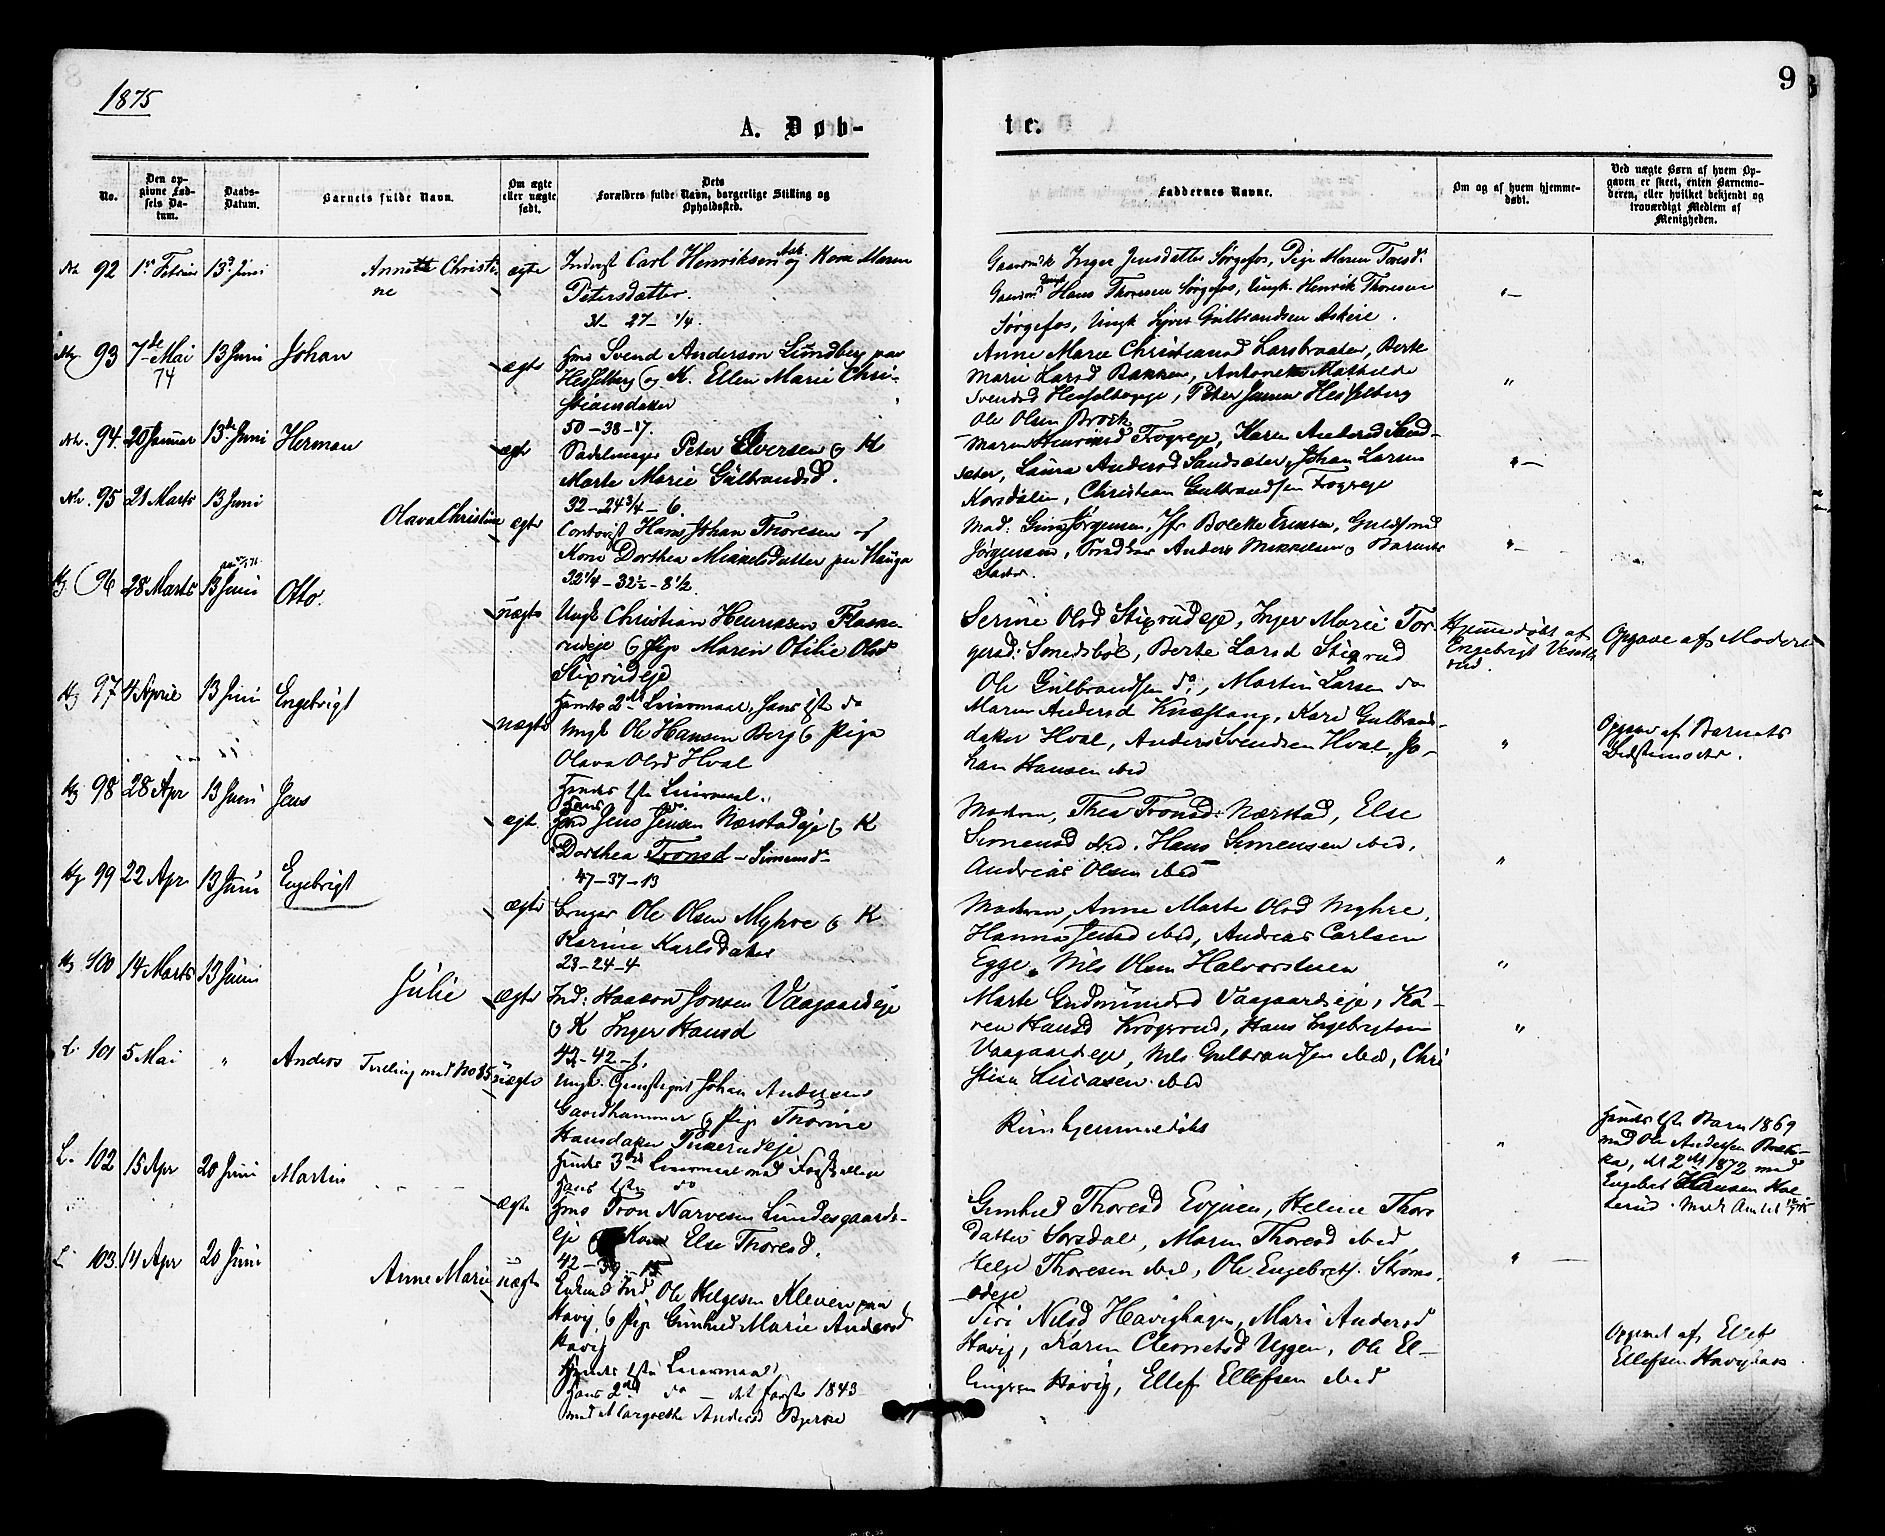 1875
9
A. Døb-
te.
No.
Den op-
givne Fød-
sels Da-
tum.
Daabs-
Datum.
Barnets fulde Navn.
Om ægte
eller uægte
født.
Dets
Forældres fulde Navn, borgerlige Stilling og
Opholdssted.
Faddernes Navne.
Om og af hvem hjemme-
døbt.
Ved uægte Børn af hvem Op-
gaven er skeet, enten Barnemo-
deren, eller hvilket bekjendt og
troværdigt Medlem af
Menigheden.
92 13d Juni Annette Christi-
ne
ægte
Inderst Carl Henriksen og Kone Maren
Petersdatter.
31- 27- 1/4.
Inger Jensdatter Sørgefos, Pige Maren Toresd.
Hans Thoresen Sørgefos, Ungk. Henrik Thoresen
Sørgefos, Ungk Gulbrandsen
"-
93 7de Mai
74
13 Juni Johan
ægte
Hmd Svend Anderson Lundberg paa
Hesselberg og K. Ellen Marie Chri-
stiansdatter
50-38-17.
Anne Marie Christiansd Larsbraaten, Berte
Marie Larsd Bakken, Antonette Mathilde
Svendsd Hesselbergeje, Peter Jensen Hesselberg
Ole Olsen
"
94. 20 Januar 13de Juni Herman
ægte
Sadelmager Peter Elversen og K
Marte Marie Gulbrandsd.
32-24 3/4-6.
Maren Henriksd Fogreje, Karen Andersd Sand-
sæter, Laura Andersd Sandsæter, Johan Larsen
Korsdalen, Christian Gulbrandsen Fogreje
"-
95 21 Marts 13 Juni Olava Christine ægte
Contorist Hans Johan Thoresen og
Kone Dorthea Mikkelsdatter paa Hauga
32 1/4-32 1/2-8 1/2
Mad: Jørgensen, Jfr Bolette Eriksen, Guldsmed
Jørgensen, Anders Mikkelsen, Barnets
Fader.
"-
96 28 Marts 13 Juni Otto.
uægte
Ungk Christian Henriksen Flaske-
rudeje og Pige Maren Otilie Olsd
Stixrudeje
Hendes 2det Leiermaal, Hans 1ste do
Serine Olsd Stixrudeje, Inger Marie Tor-
gersd: Smedsbøl, Berte Larsd Stixrud
Ole Gulbrandsen do, Martin Larsen do
Hjemmedøbt af
Engebrigt
rud.
Opgave af Moderen
97 4 April 13 Juni Engebrigt
uægte
Ungk Ole Hansen Berg og Pige
Olava Olsd Hval
Hendes 1ste Leiermaal.
Hans do.
Maren Andersd Knæstang, Kari Gulbrands-
datter Hval, Anders Svendsen Hval, Jo-
han Hansen ibid
"
Opgave af Barnets
Bedstemoder.
98 28 Apr 13 Juni Jens
ægte
Hmd Jens Jensen Nærstadeje og K
Dorthea Tronsd - Simensd-
47-37-13
Moderen, Thea Tronsd: Nærstad, Else
Simensd ibid. Hans Simensen ibid,
Andreas Olsen ibid
"
99 22 Apr 13 Juni Engebrigt
ægte
Bruger Ole Olsen Myhre og K
Karine Karlsdatter
23-24-4
Moderen, Anne Marte Olsd Myhre,
Hanna Jensd ibid, Andreas Carlsen
Egge, Nils Olsen Halvorstuen
"
100 14 Marts 13 Juni Julie
ægte
Ind: Haaken Jonsen Vaagaardeje
og K Inger Hansd
42-42-1,
Marte Gudmundsd Vaagaardseje, Ka-
ren Hansd Krogsrud, Hans Engebrigtsen
Vaagaardseje, Nils Gulbrandsen ibid, Chri
stian ibid
"
101 5 Mai " Anders Tvilling med No 85 uægte
Ungk. Johan Andersen
Gaardhammer og Pige Thorine
Hansdatter
Hendes 3die Leiermaal med
Hans 1ste do
Kun hjemmedøbt
"
Hendes 1ste Barn 1869
med Ole Andersen
det 2det 1872 med
Engebret Hansen Hol-
lerud.
102 15 Apr 20 Juni Martin
ægte
Hmd Tron Narvesen Lundesgaards-
eje og Kone Else Thoresd.
42-39-13
Gunhild Thoresd Evjuen, Helene Thors-
datter Sorsdal, Maren Thoresd ibid
Helge Thoresen ibid, Ole Engebretsen Strøms-
odeje
"
103. 14 Apr 20 Juni Anne Marie uægte
Enkemd Ind. Ole Helgesen Kleven paa
Hovig og Pige Gunhild Marie Andersd
Hovig
Hendes 1ste Leiermaal,
Hans 2det do - det første 1843
med Margrethe Andersd Bjerke
Siri Nilsd Hovighagen, Mari Andersd
Hovig, Karen Clemetsd Uggen, Ole El-
lingsen Hovig, Ellef Ellefsen ibid
Opgivet af Ellef
Ellefsen